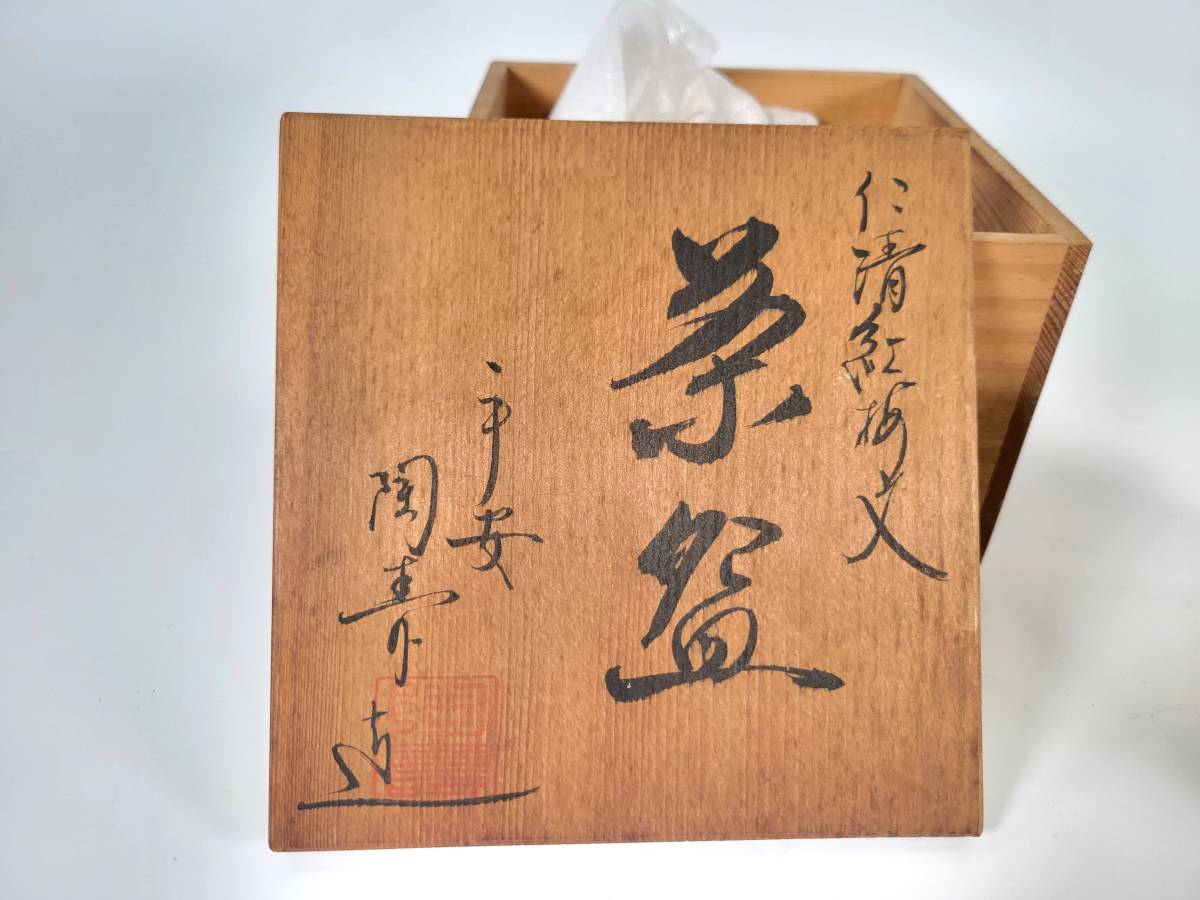 仁清紅梅文
茶盌
平安
陶寿造